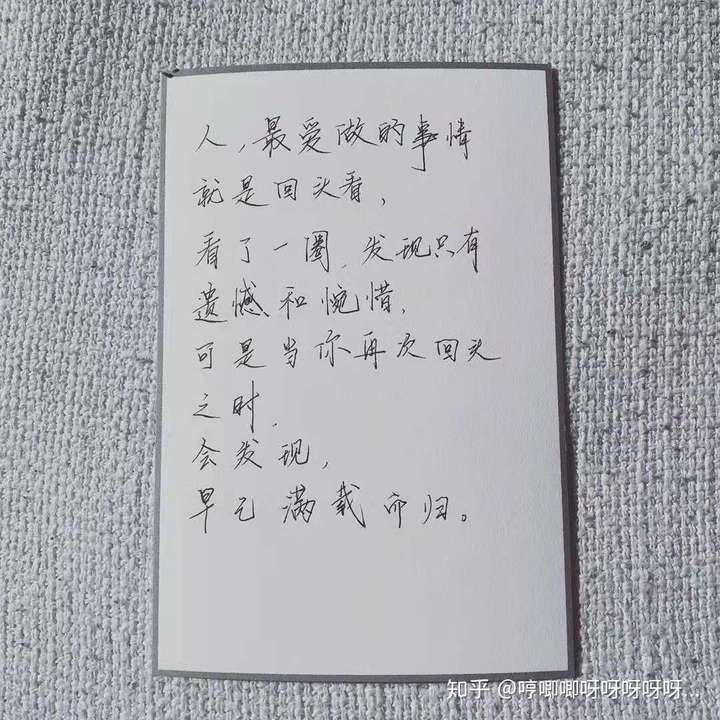 人,最爱做的事情
就是回头看,
看了一圈,发现只有
遗憾和惋惜,
可是当你再次回头
之时,
会发现,
早已满载而归。
知乎 @哼唧唧呀呀呀呀呀...